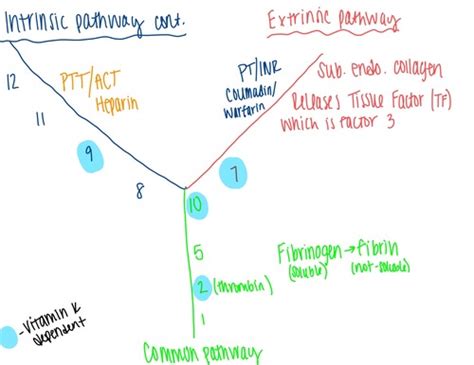 Intrinsic pathway cont.
Extrinsic pathway
12
PTT/ACT
Heparin
11
9
8
PT/INR
Coumadin/
Warfarin
Sub. endo. collagen
Releases Tissue Factor (TF)
which is factor 3
7
10
5
Fibrinogen → fibrin
(soluble) (not-soluble)
2 (thrombin)
1
-Vitamin K
dependent
Common pathway